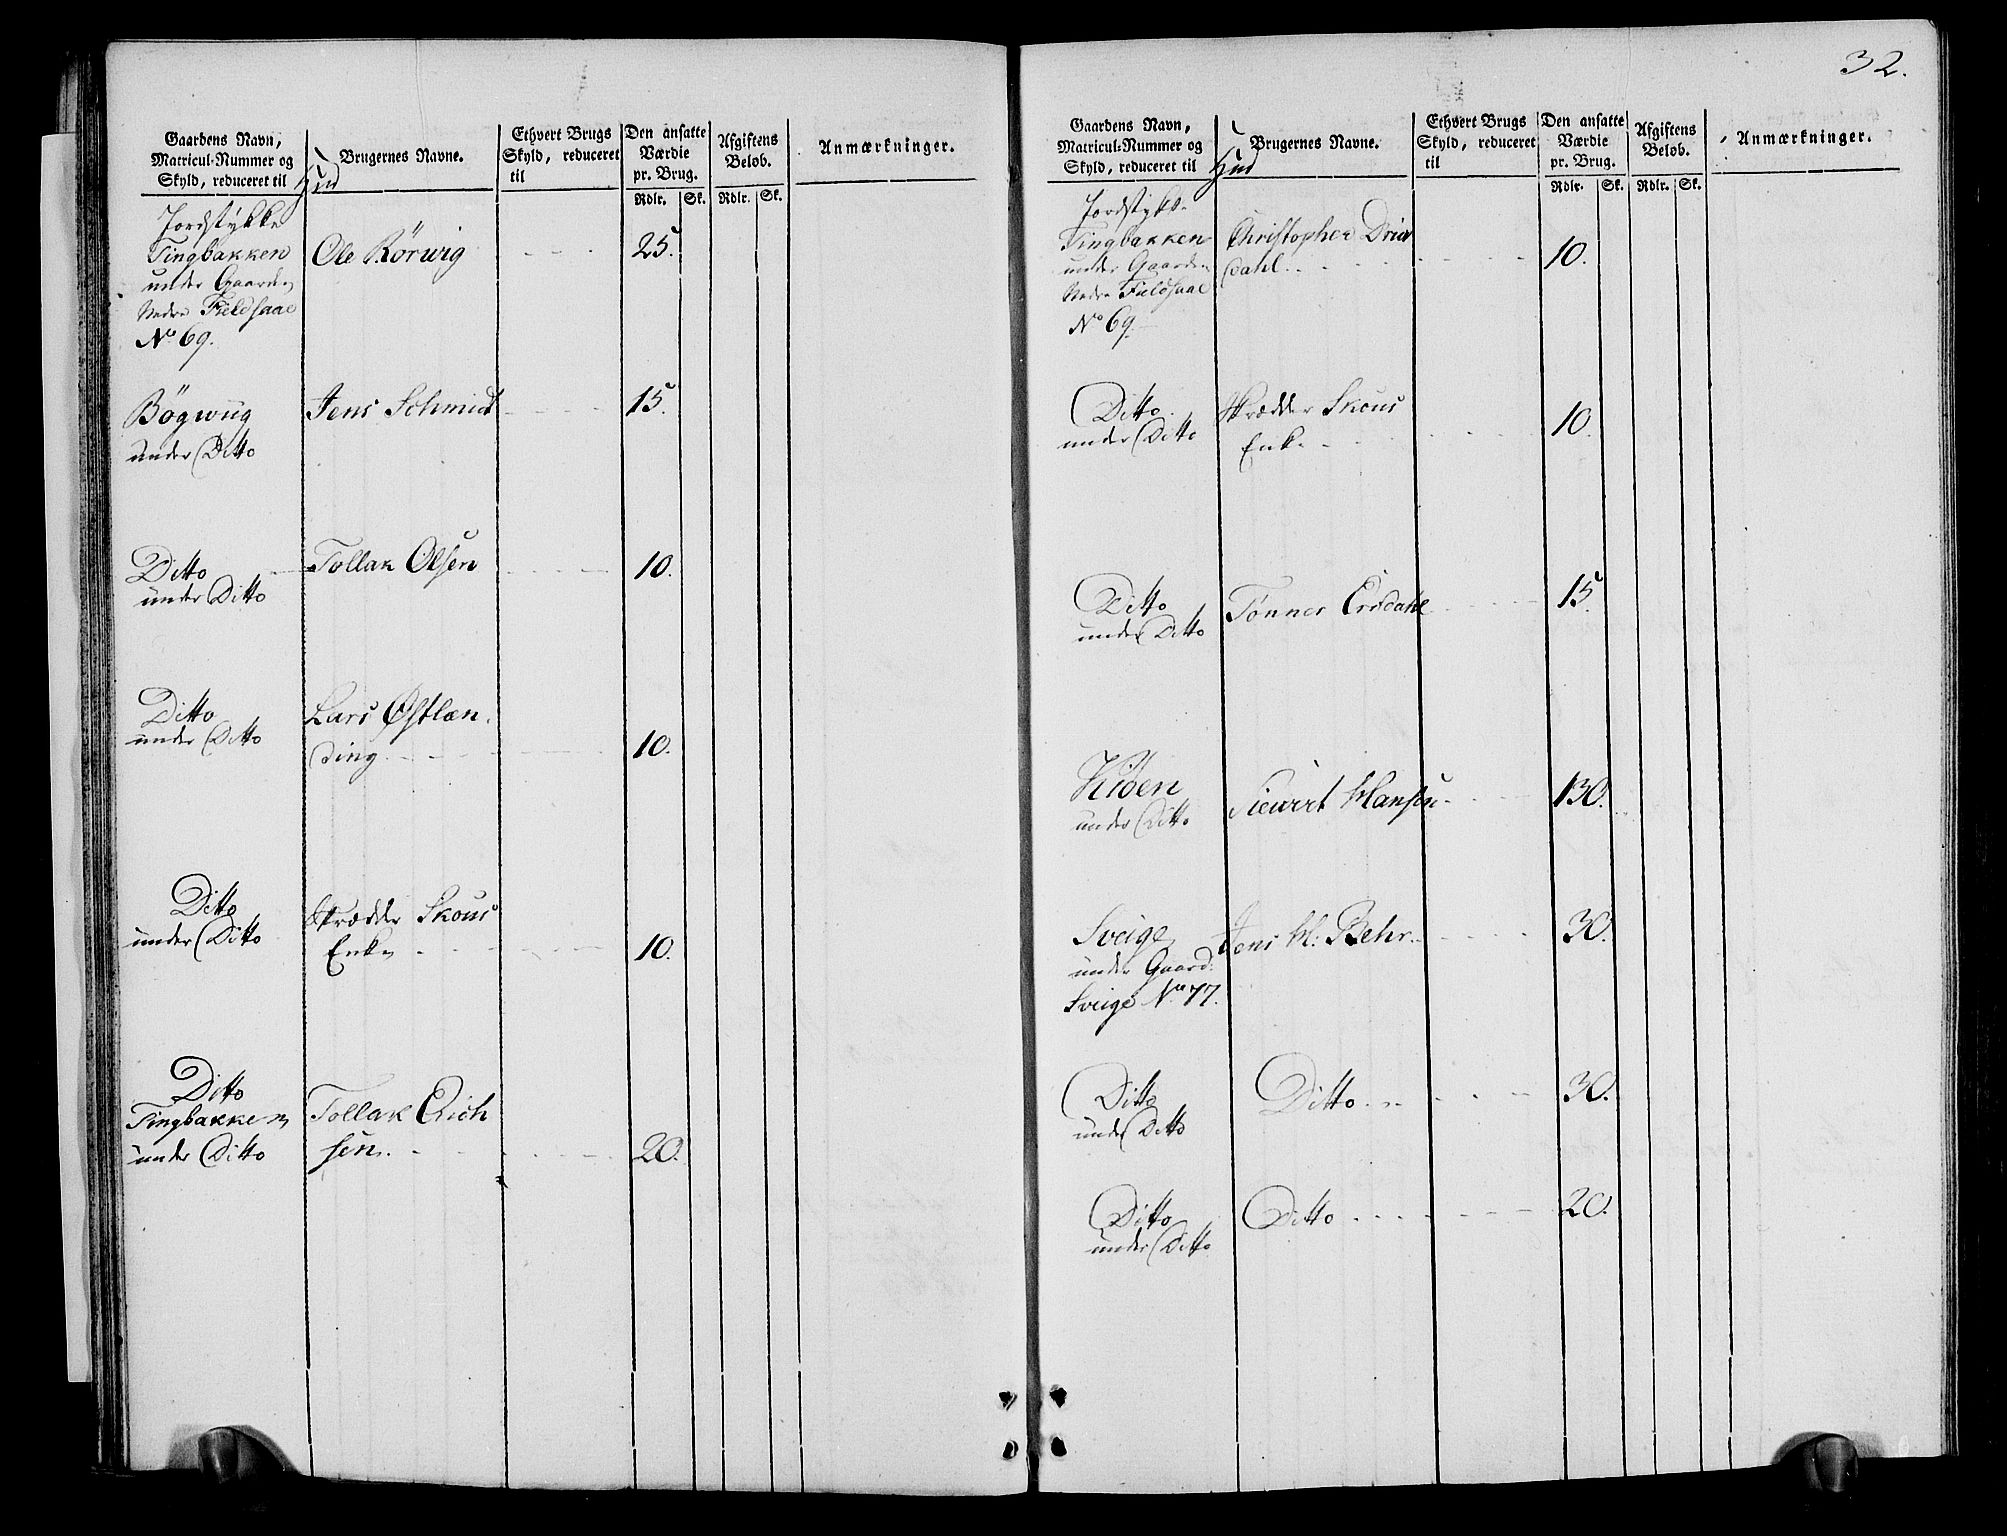 Gaardens Navn,
Matricul-Nummer og
Skyld, reduceret til
Hud
Brugernes Navne.
Ethvert Brugs
Skyld, reduceret
til
Den ansatte
Værdie
pr. Brug.
Rdlr. Sk.
Afgiftens
Beløb.
Rdlr. Sk.
Anmærkninger.
Jordstykke
Tingbakken
under Gaarden
Nedre Fieldsaae
No 69.
Ole Rörvig 25.
Bögwug
under Ditto
Jens Schmidt 15.
Ditto
under Ditto
Tollak Olsen 10.
Ditto
under Ditto
Lars Østlæn
ding 10.
Ditto
under Ditto
Skrædder Skous
Enke 10.
Ditto
Tingbakken
under Ditto
Tollak Erich
sen 20.
32.
Gaardens Navn,
Matricul-Nummer og
Skyld, reduceret til
Hud
Brugernes Navne.
Ethvert Brugs
Skyld, reduceret
til
Den ansatte
Værdie
pr. Brug.
Rdlr. Sk.
Afgiftens
Beløb.
Rdlr. Sk.
Anmærkninger.
Jordstykke
Tingbakken
under Gaarden
Nedre Fieldsaae
No 69.
Christopher
dahl 10.
Ditto
under Ditto
Skrædder Skous
Enke 10.
Ditto
under Ditto
Tønnes Ersdahl 15.
Kiöen
under Ditto
Siewert Hansen 130.
Sveige
under Gaard:
Sveige No 77.
Jens H: Behr 30.
Ditto
under Ditto
Ditto 30.
Ditto
under Ditto
Ditto 20.